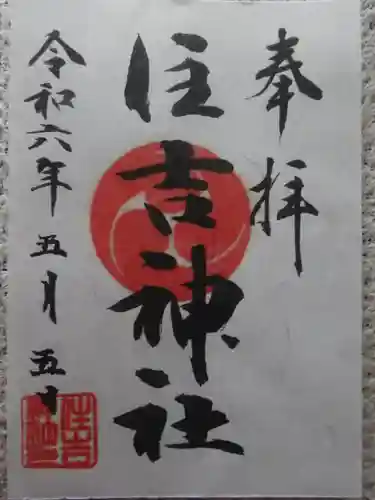 奉拝
住吉神社
令和六年五月五日